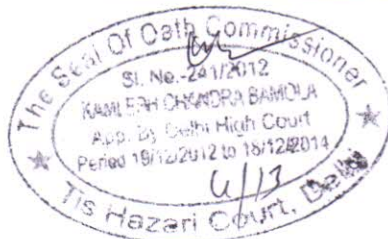 The Seal Of Oath Commissioner
Sl. No.-241/2012
KAMLESH CHANDRA BAMOLA
App. By Delhi High Court
Period 19/12/2012 to 18/12/2014
4/13
Tis Hazari Court, Delhi